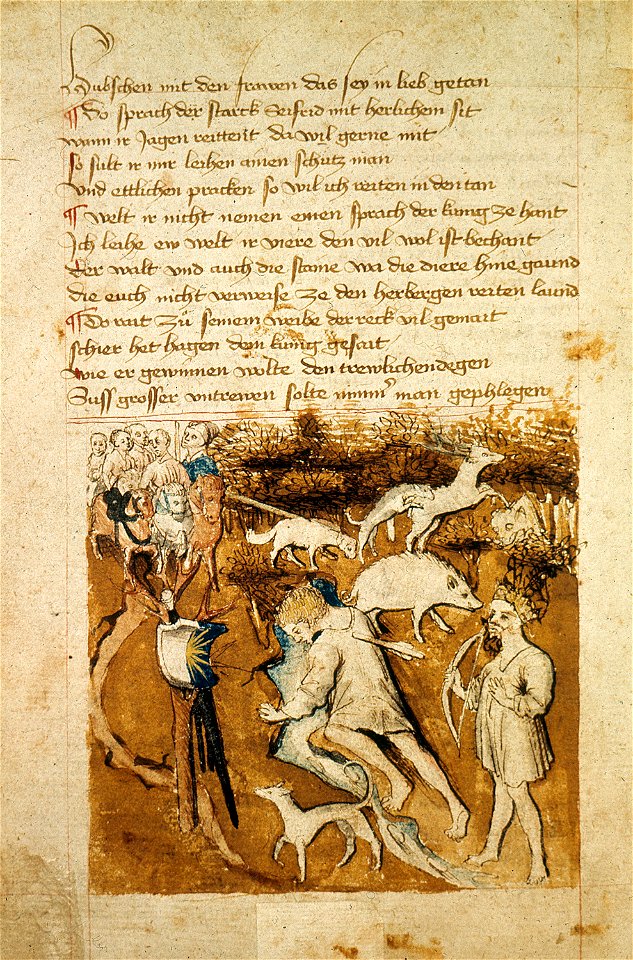 Hubschen mit den frawen das sey in lieb getan
¶ Do sprach der starck Seifrid mit herlichem sit
wann ir Jagen reittent da wil gerne mit
so sult ir mir leihen ainen schutz man
vnd ettlichen pracken so wil ich reiten in den tan
¶ Welt ir nicht nemen einen sprach der kunig ze hant
Ich leihe ew welt ir viere den vil wol ist bechant
der walt vnd auch die staine wa die diere hine gaund
die euch nicht verweise ze den herbergen reiten laund
¶ Do rait zů seinem weibe der reck vil gemait
schier het hagen dem kunig gesait
wie er gewinnen wolte den trewlichen degen
Suss grosser vntrewen solte nimmer man gephlegen